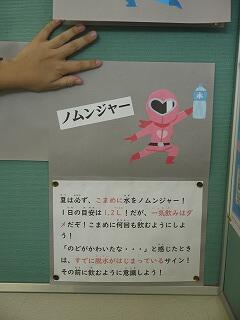 水
ノムンジャー
夏は必ず、こまめに水をノムンジャー！
１日の目安は1.2L！だが、一気飲みはダ
メだぞ！こまめに何回も飲むようにしよ
う！
「のどがかわいたな・・・」と感じたとき
は、すでに脱水がはじまっているサイン！
その前に飲むように意識しよう！